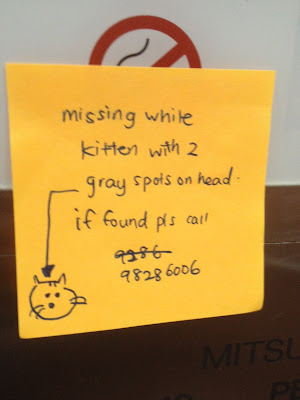 missing while
kitten with 2
gray spots on head.
if found pls call
98286006
MITSU